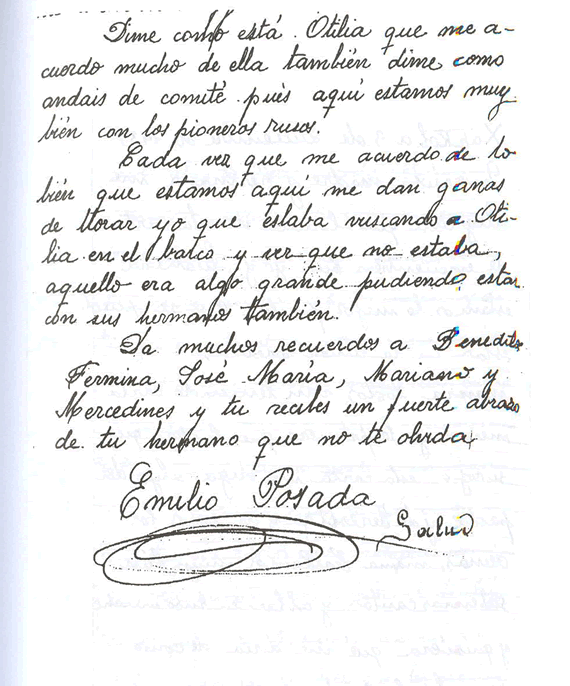 Dime como está Otilia que me a-
cuerdo mucho de ella también dime como
andais de comité pués aquí estamos muy
bién con los pioneros rusos.
Cada vez que me acuerdo de lo
bién que estamos aquí me dan ganas
de llorar yo que estaba vuscando a Oti-
lia en el barco y ver que no estaba,
aquello era algo grande pudiendo estar
con sus hermanos también.
Da muchos recuerdos a Benedit
Fermina, José María, Mariano y
Mercedines y tu recibes un fuerte abrazo
de tu hermano que no te olvida
Emilio Posada
Salud